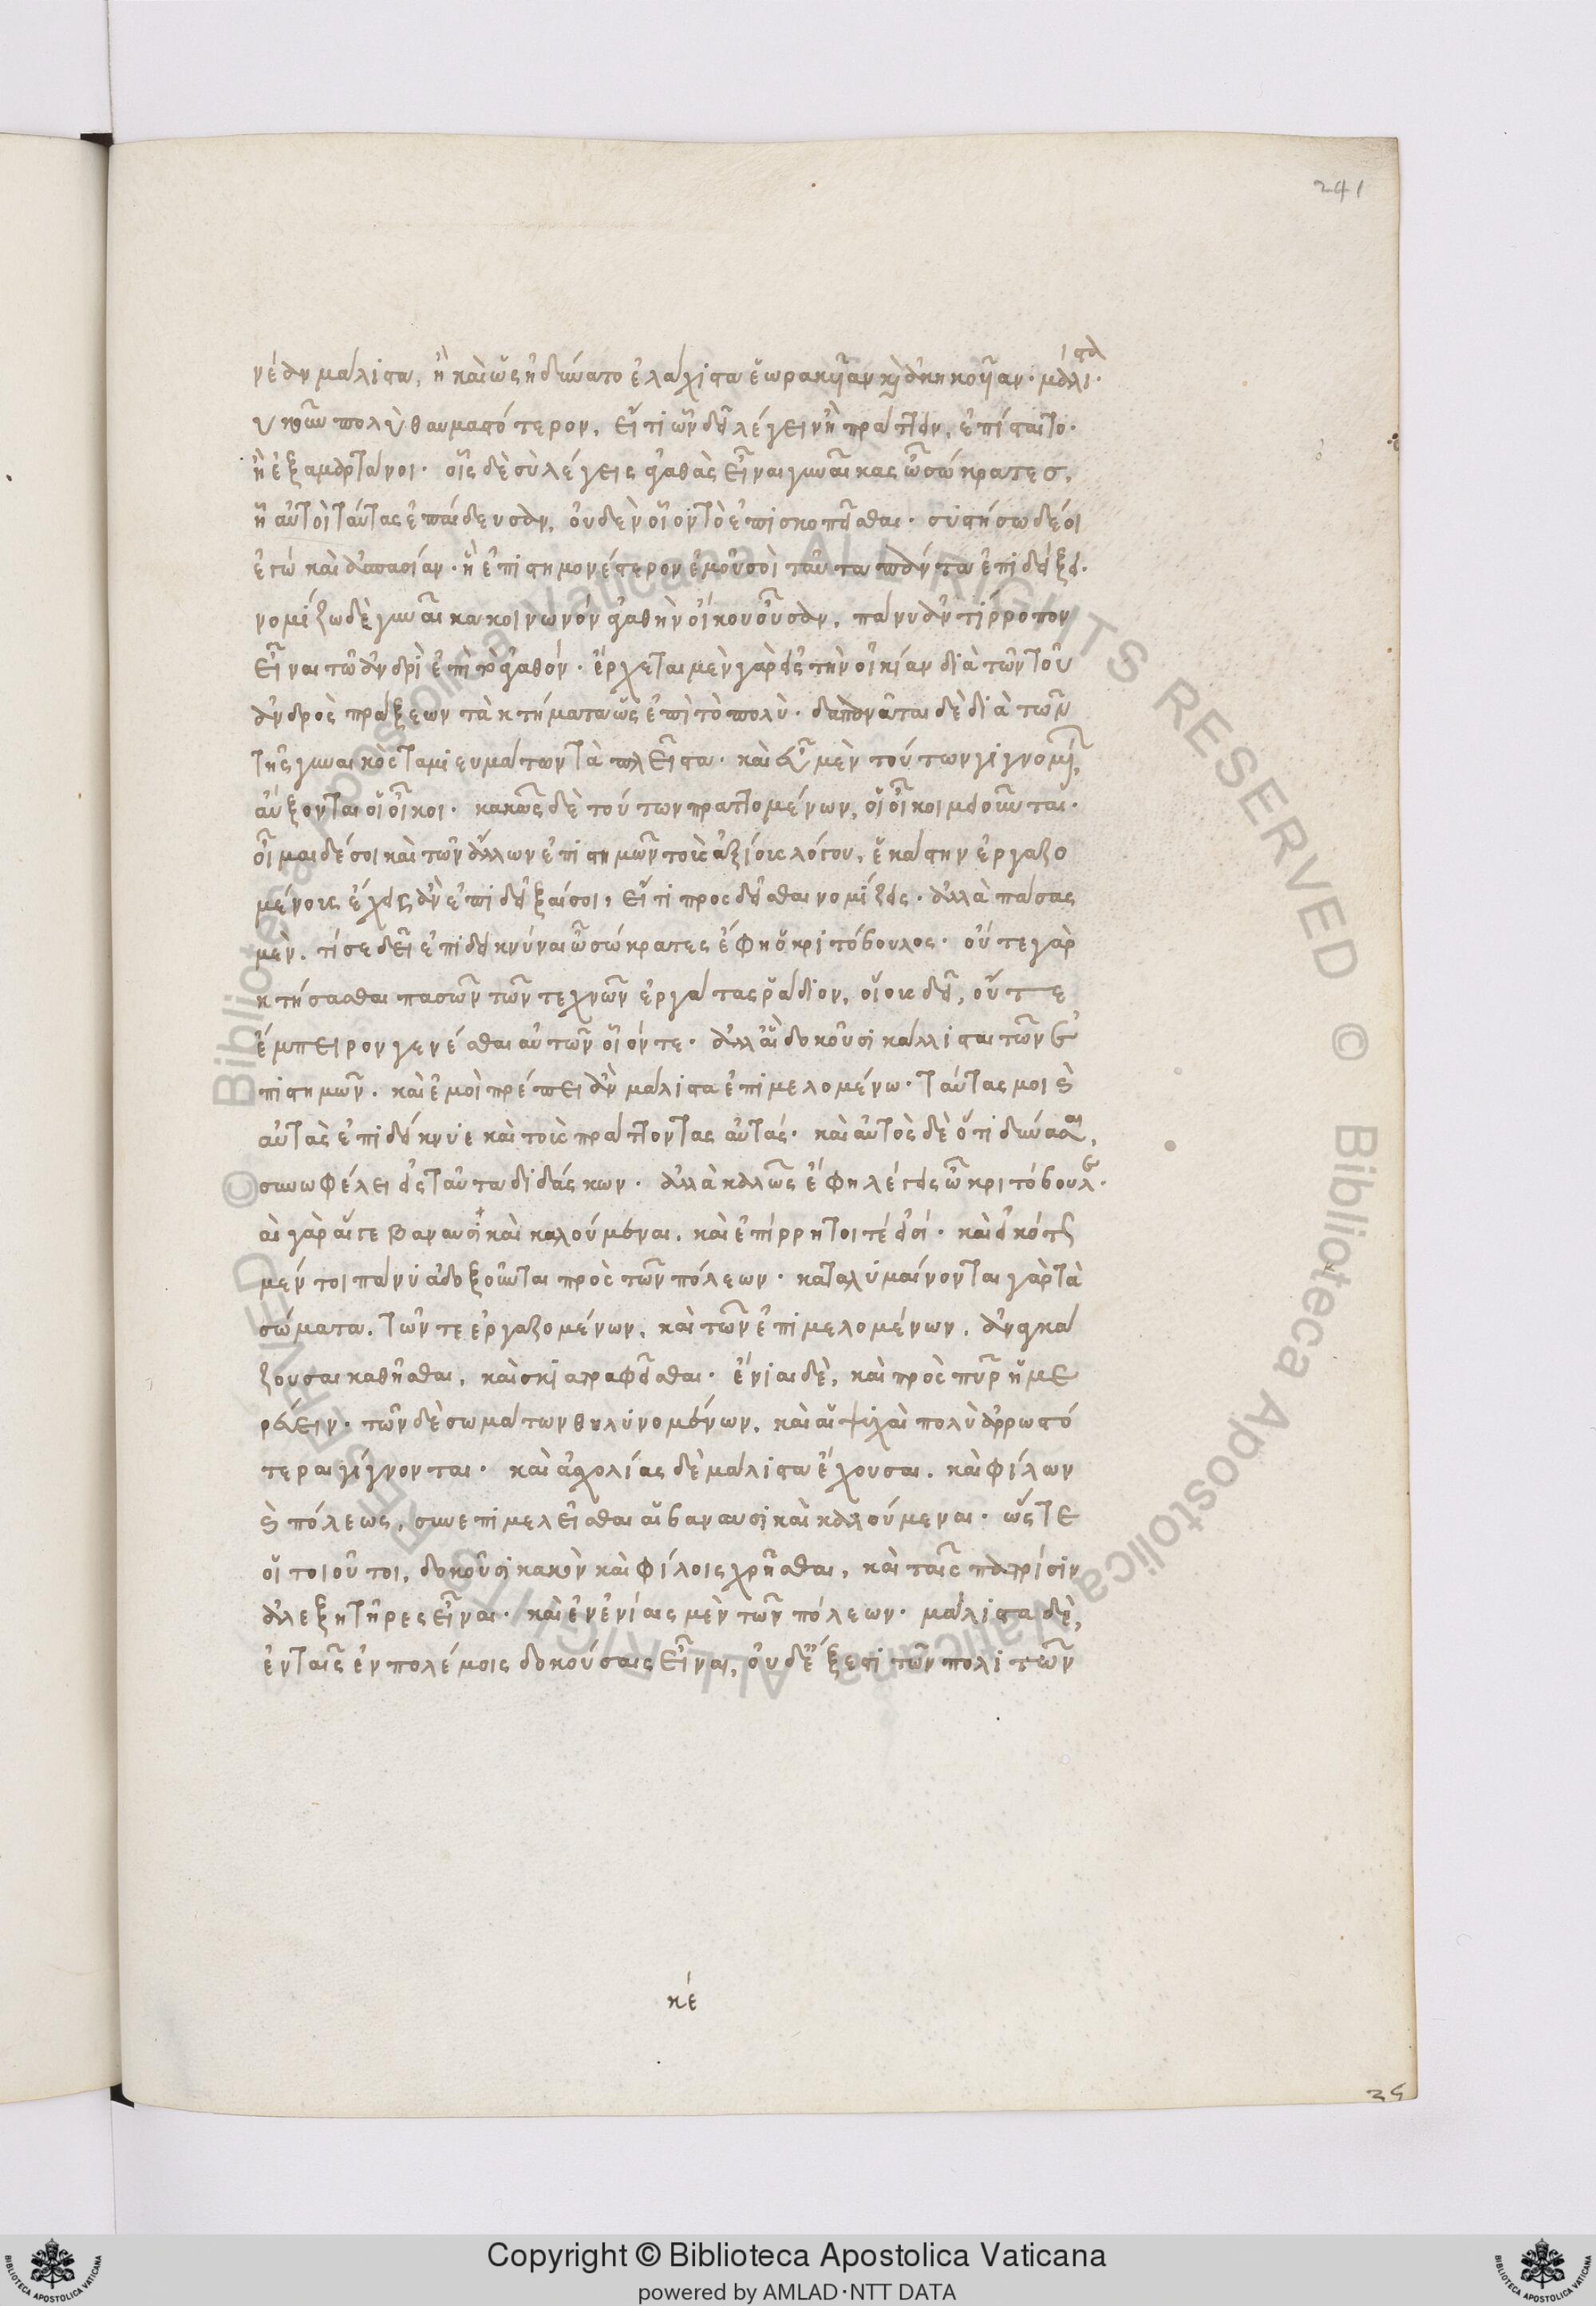 241
νέαν μάλιστα, ἢ καὶ ὡς ἠδύνατο ἐλάχιστα ἑωρακυῖαν καὶ ἀκηκουῖαν· μάλιστα·
γὰρ ἂν πολὺ θαυμαστότερον, εἴ τι ὧν δεῖ λέγειν ἢ πράττειν, ἐπίσταιτο·
ἢ ἐξαμαρτάνοι· οἷς δὲ σὺ λέγεις ἀγαθὰς εἶναι γυναῖκας ὦ σώκρατες,
ἢ αὐτοὶ ταύτας ἐπαίδευσαν, οὐδὲν οἷον τὸ ἐπισκοπεῖσθαι· συστήσω δέ οι
ἐγὼ καὶ ἀσπασίαν· ἣ ἐπιστημονέστερον ἐμοῦ σοὶ ταῦτα πάντα ἐπιδείξει·
νομίζω δὲ γυναῖκα κοινωνὸν ἀγαθὴν οἴκου οὖσαν, πάνυ ἀντίρροπον
εἶναι τῶ ἀνδρὶ ἐπὶ τὸ ἀγαθόν· ἔρχεται μὲν γὰρ εἰς τὴν οἰκίαν διὰ τῶν τοῦ
ἀνδρὸς πράξεων τὰ κτήματα ὡς ἐπὶ τὸ πολὺ· δαπανᾶται δὲ διὰ τῶν
τῆς γυναικὸς ταμιευμάτων τὰ πλεῖστα· καὶ εὖ μὲν τούτων γιγνομένων,
αὔξονται οἱ οἶκοι· κακῶς δὲ τούτων πραττομένων, οἱ οἶκοι μειοῦνται·
οἶμαι δέ σοι καὶ τῶν ἄλλων ἐπιστημῶν τοὺς ἀξίους λόγου, ἑκάστην ἐργαζο
μένους ἔχειν ἂν ἐπιδεῖξαί σοι, εἴ τι προσδεῖσθαι νομίζεις· ἀλλὰ πάσας
μὲν. τί σε δεῖ ἐπιδεικνύναι ὦ σώκρατες ἔφη ὁ κριτόβουλος· οὔτε γὰρ
κτήσασθαι πασῶν τῶν τεχνῶν ἐργάτας ῥάδιον, οἵους δεῖ, οὔτε
ἔμπειρον γενέσθαι αὐτῶν οἷόν τε· ἀλλ' αἳ δοκοῦσι κάλλισται τῶν ἐ
πιστημῶν. καὶ ἐμοὶ πρέπει ἂν μάλιστα ἐπιμελομένω· ταύτας μοι καὶ
αὐτὰς ἐπιδείκνυε καὶ τοὺς πράττοντας αὐτάς· καὶ αὐτὸς δὲ ὅτι δύνασαι,
συνωφέλει εἰς ταῦτα διδάσκων· ἀλλὰ καλῶς ἔφη λέγεις ὦ κριτόβουλε·
αἱ γὰρ αἵ γε βαναυσικαὶ καλούμεναι. καὶ ἐπίρρητοι τέ εἰσί· καὶ εἰκότως
μέν τοι πάνυ ἀδοξοῦνται πρὸς τῶν πόλεων· καταλυμαίνονται γὰρ τὰ
σώματα. τῶν τε ἐργαζομένων, καὶ τῶν ἐπιμελομένων. ἀναγκά
ζουσαι καθῆσθαι, καὶ σκιατραφεῖσθαι· ἔνιαι δὲ, καὶ πρὸς πῦρ ἡμε
ρεύειν· τῶν δὲ σωμάτων θηλυνομένων, καὶ αἱ ψυχαὶ πολὺ ἀρρωστό
τεραι γίγνονται· καὶ ἀσχολίας δὲ μάλιστα ἔχουσαι. καὶ φίλων
καὶ πόλεως, συνεπιμελεῖσθαι αἱ βαναυσικαὶ καλούμεναι· ὥστε
οἱ τοιοῦτοι, δοκοῦσι κακὸν καὶ φίλοις χρῆσθαι, καὶ ταῖς πατρίσιν
ἀλεξητῆρες εἶναι· καὶ ἐν ἐνίαις μὲν τῶν πόλεων· μάλιστα δὲ,
ἐν ταῖς ἐν πολέμοις δοκούσαις εἶναι, οὐδ' ἔξεστι τῶν πολιτῶν
κέ
35
© Biblioteca Apostolica Vaticana ALL RIGHTS RESERVED
© Biblioteca Apostolica Vaticana ALL RIGHTS RESERVED
Copyright © Biblioteca Apostolica Vaticana
powered by AMLAD·NTT DATA